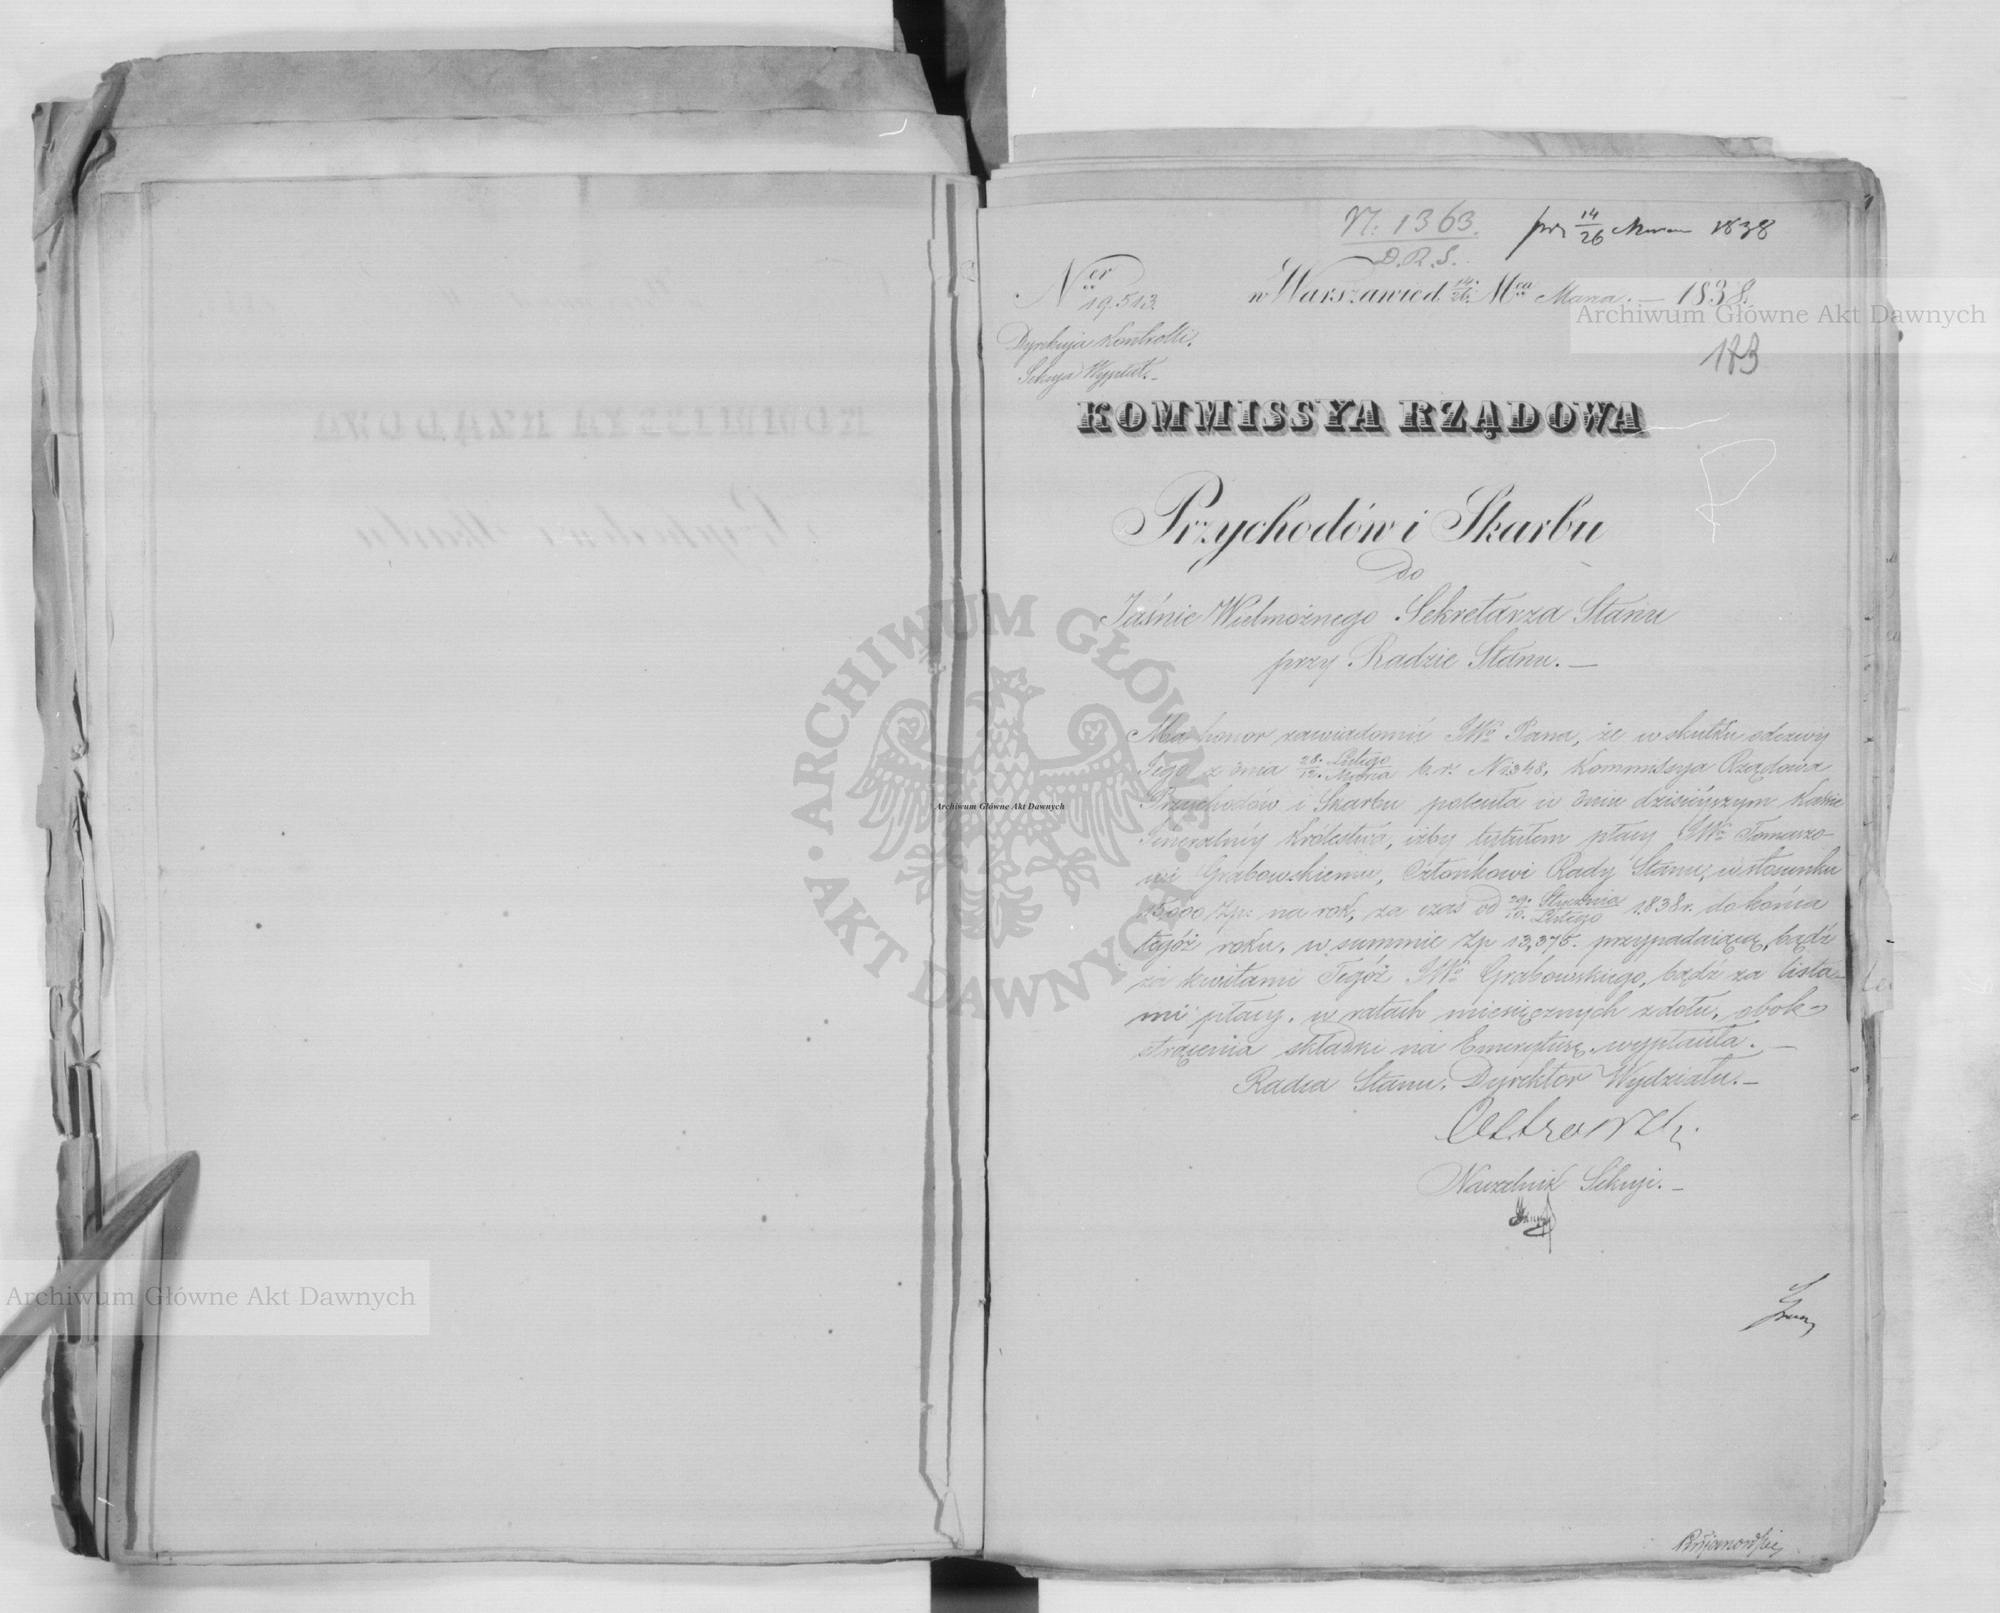 N. 1363.
D.R.S.
pr 14/26 Marca 1838
Ner 19513.
w Warszawie d. 14/26. Mca Marca. — 1838.
Archiwum Główne Akt Dawnych
183
Dyrekcja Kontrolli.
Sekcja Wypłat. —
KOMMISSYA RZĄDOWA
Przychodów i Skarbu
do
Jaśnie Wielmożnego Sekretarza Stanu
przy Radzie Stanu. —
Ma honor zawiadomić JWo Pana, że w skutku odezwy
Jego z dnia 28. Lutego/12. Marca b.r. N 1348, Kommissya Rządowa
Przychodów i Skarbu poleciła w dniu dzisiéjszym Kassie
Jeneralnéj Królestwa, iżby tytułem płacy JWo Tomaszo-
wi Grabowskiemu, Członkowi Rady Stanu, w stosunku
15,000 Zp: na rok, za czas od 29. Stycznia/10. Lutego 1838 r. do końca
tegóż roku, w summie Zp 13,375. przypadaiącą, bądź
za kwitami Tegóż JWo Grabowskiego, bądź za lista-
mi płacy, w ratach miesięcznych z dołu, obok
strącenia składki na Emeryturę, wypłaciła. —
Radca Stanu, Dyrektor Wydziału. —
Naczelnik Sekcji. —
ARCHIWUM GŁÓWNE AKT DAWNYCH
Archiwum Główne Akt Dawnych
Archiwum Główne Akt Dawnych